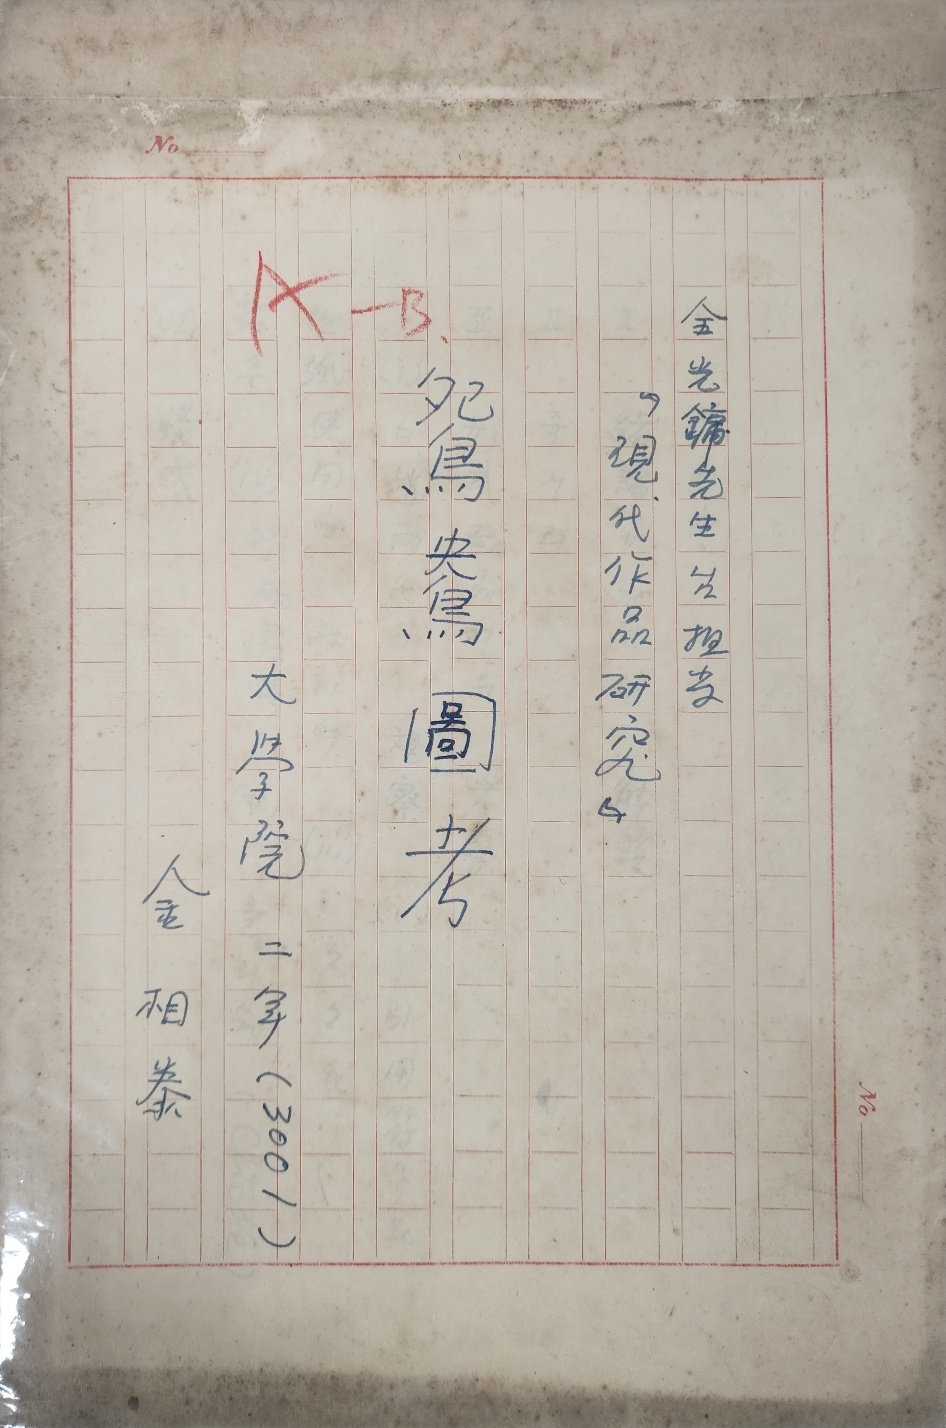 No
全光鏞先生分担当
「現代作品研究」
A-B.
鴛鴦圖考
大學院 二年(3001)
金相泰
No